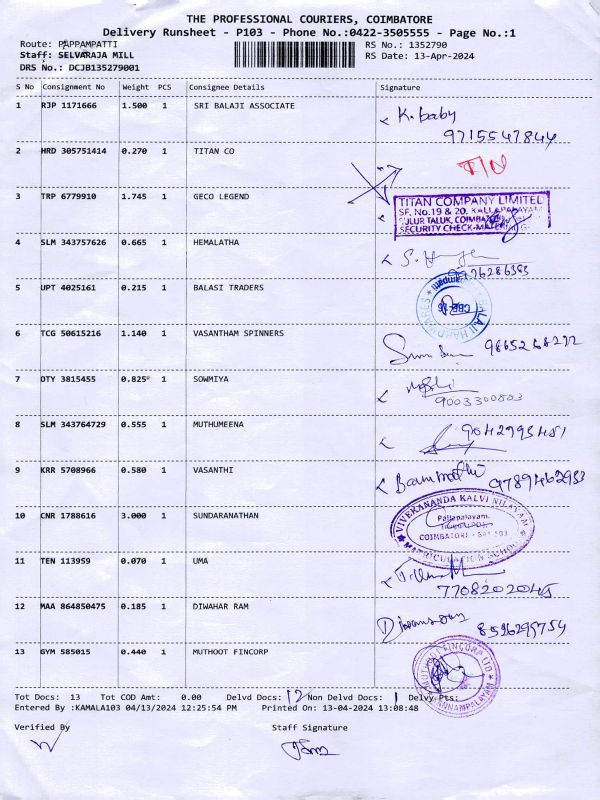 THE PROFESSIONAL COURIERS, COIMBATORE
Delivery Runsheet - P103 - Phone No.:0422-3505555 - Page No.:1
Route: PAPPAMPATTI
Staff: SELVARAJA MILL
DRS No.: DCJB135279001
RS No.: 1352790
RS Date: 13-Apr-2024
S No Consignment No Weight PCS Consignee Details Signature
1 RJP 1171666 1.500 1 SRI BALAJI ASSOCIATE
K. baby
9715547844
2 HRD 305751414 0.270 1 TITAN CO
3 TRP 6779910 1.745 1 GECO LEGEND
TITAN COMPANY LIMITED
SF. No.19 & 20, KALLAPALAYAM
SULUR TALUK, COIMBATORE
SECURITY CHECK-MATERIAL
4 SLM 343757626 0.665 1 HEMALATHA
5 UPT 4025161 0.215 1 BALASI TRADERS
6 TCG 50615216 1.140 1 VASANTHAM SPINNERS
7 OTY 3815455 0.825 1 SOWMIYA
9003300803
8 SLM 343764729 0.555 1 MUTHUMEENA
9042793451
9 KRR 5708966 0.580 1 VASANTHI
9789462933
10 CNR 1788616 3.000 1 SUNDARANATHAN
VIVEKANANDA KALVI NILAYAM
Pallapalayam,
COIMBATORE - 641 103
MATRICULATION SCHOOL
11 TEN 113959 0.070 1 UMA
7708202045
12 MAA 864850475 0.185 1 DIWAHAR RAM
8526295754
13 GYM 585015 0.440 1 MUTHOOT FINCORP
Tot Docs: 13 Tot COD Amt: 0.00 Delvd Docs: 12 Non Delvd Docs: 1 Delvey Pts:
Entered By :KAMALA103 04/13/2024 12:25:54 PM Printed On: 13-04-2024 13:08:48
Verified By Staff Signature